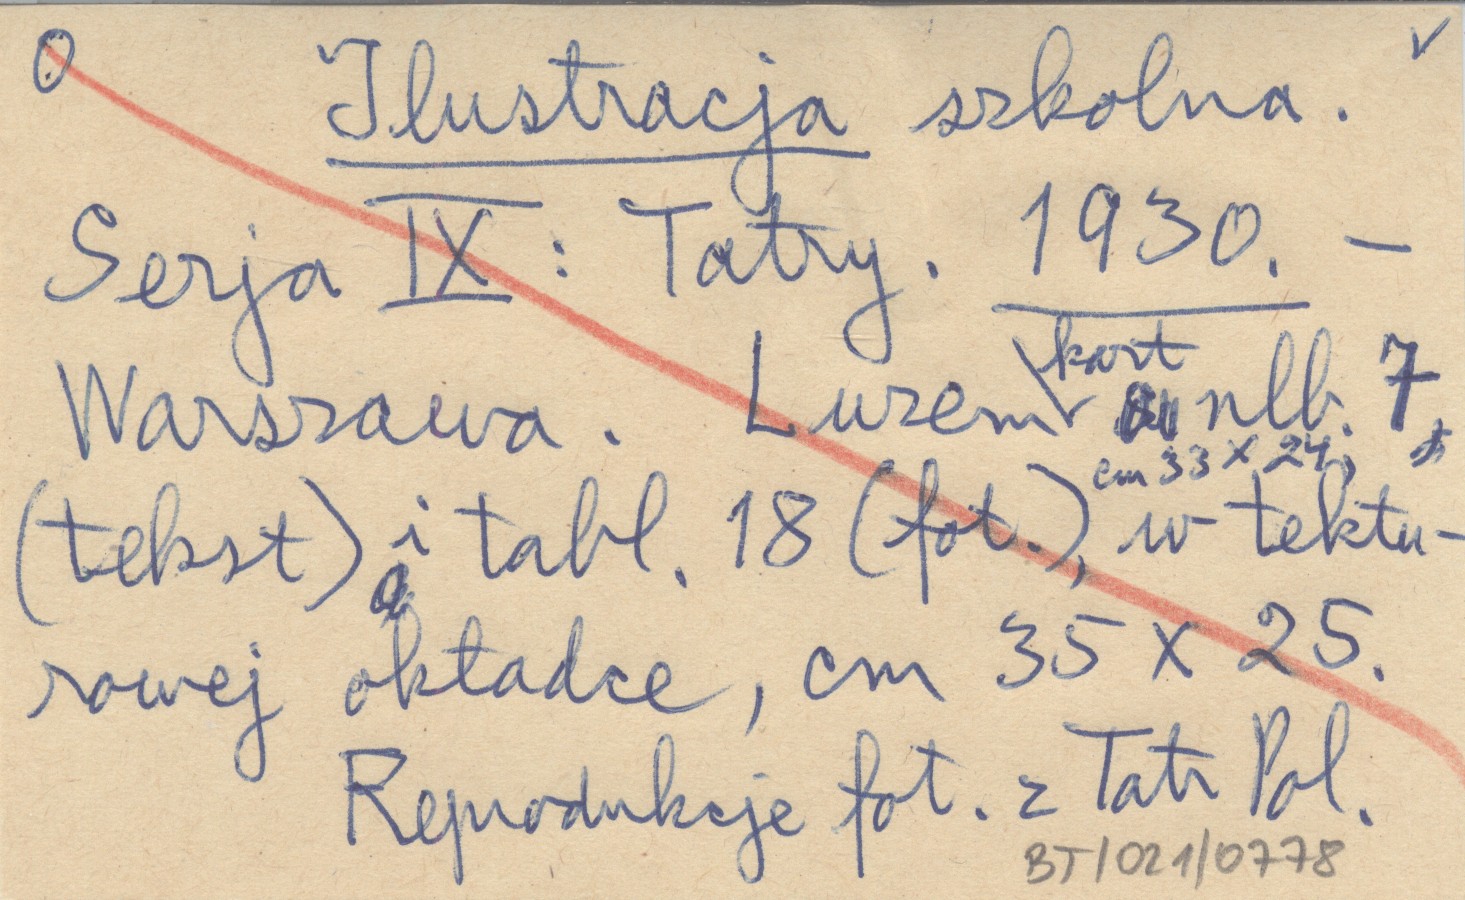 O Ilustracja szkolna. ✓
Serja IX : Tatry. 1930. –
Warszawa. Lurem kart nlb. 7,
cm 33 x 24,
(tekst) i tabl. 18 (fot.), w tektu-
rowej okładce, cm 35 x 25.
Reprodukcje fot. z Tatr Pol.
BT/021/0778